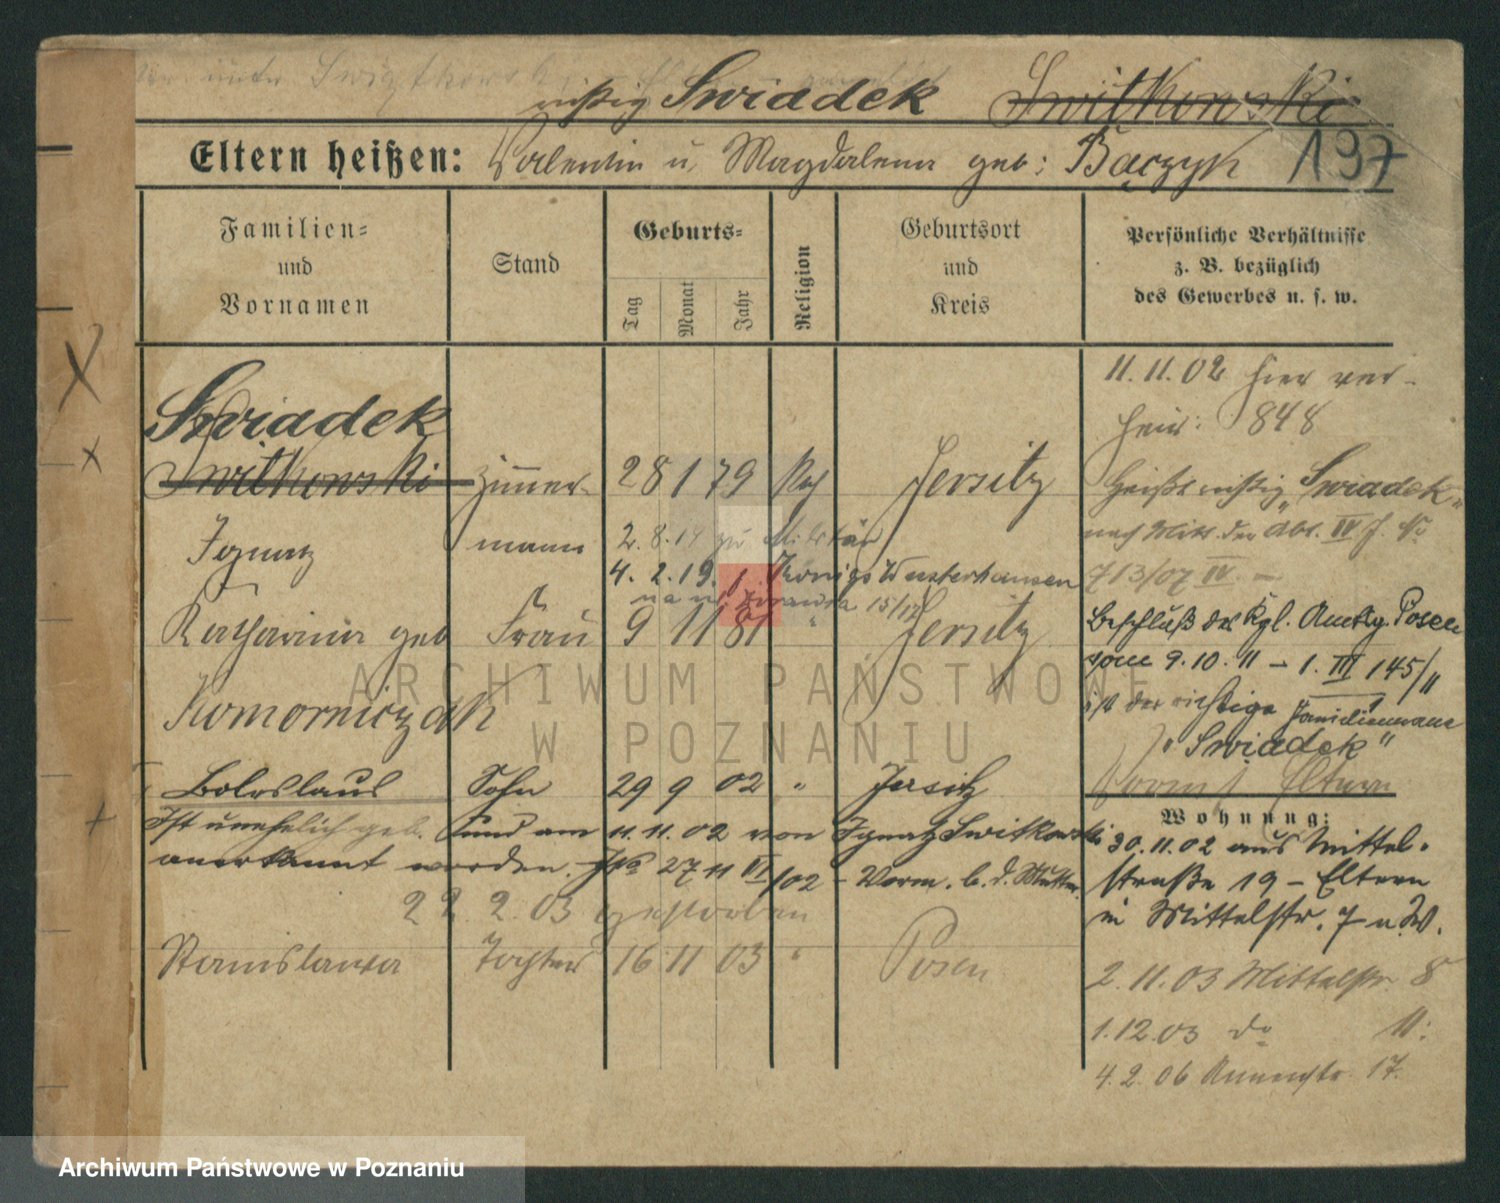 richtig Swiadek Switkowski
Eltern heißen: Valentin u. Magdalena geb: Bączyk 197
Familien=
und
Vornamen
Stand
Geburts=
Tag Monat Jahr
Religion
Geburtsort
und
Kreis
Persönliche Verhältnisse
z. B. bezüglich
des Gewerbes u. s. w.
Swiadek
Switkowski Zimmer- 28 1 79 Kath Jersitz
Ignatz mann
2.8.14 zu Militär
4. 2. 19. Königs Wusterhausen
15/12
Katharina geb Frau 9 11 81 " Jersitz
Komorniczak
Boleslaus Sohn 29 9 02 " Jersitz
Ist unehelich geb. und am 11.11.02 von Ignatz Switkowski
anerkannt worden. J№ 2711 VI/02 – Vorm. b. d. Mutter
22.2.03 gestorben
Stanislawa Tochter 16 11 03 " Posen
11.11.02 hier ver-
heir: 848
heißt richtig „Swiadek"
nach Mitt. der Abt. IV J. No
713/07 IV. –
Beschluß des Kgl. Amtsg. Posen
vom 9.10.11 – 1. III 145/11
ist der richtige Familienname
„Swiadek"
Eltern
Wohnung:
30.11.02 aus Mittel-
straße 19 – Eltern
in Mittelstr. 7 u. W.
2.11.03 Mittelstr. 8
1.12.03 do 11:
4.2.06 Annenstr. 17.
ARCHIWUM PAŃSTWOWE
W POZNANIU
Archiwum Państwowe w Poznaniu